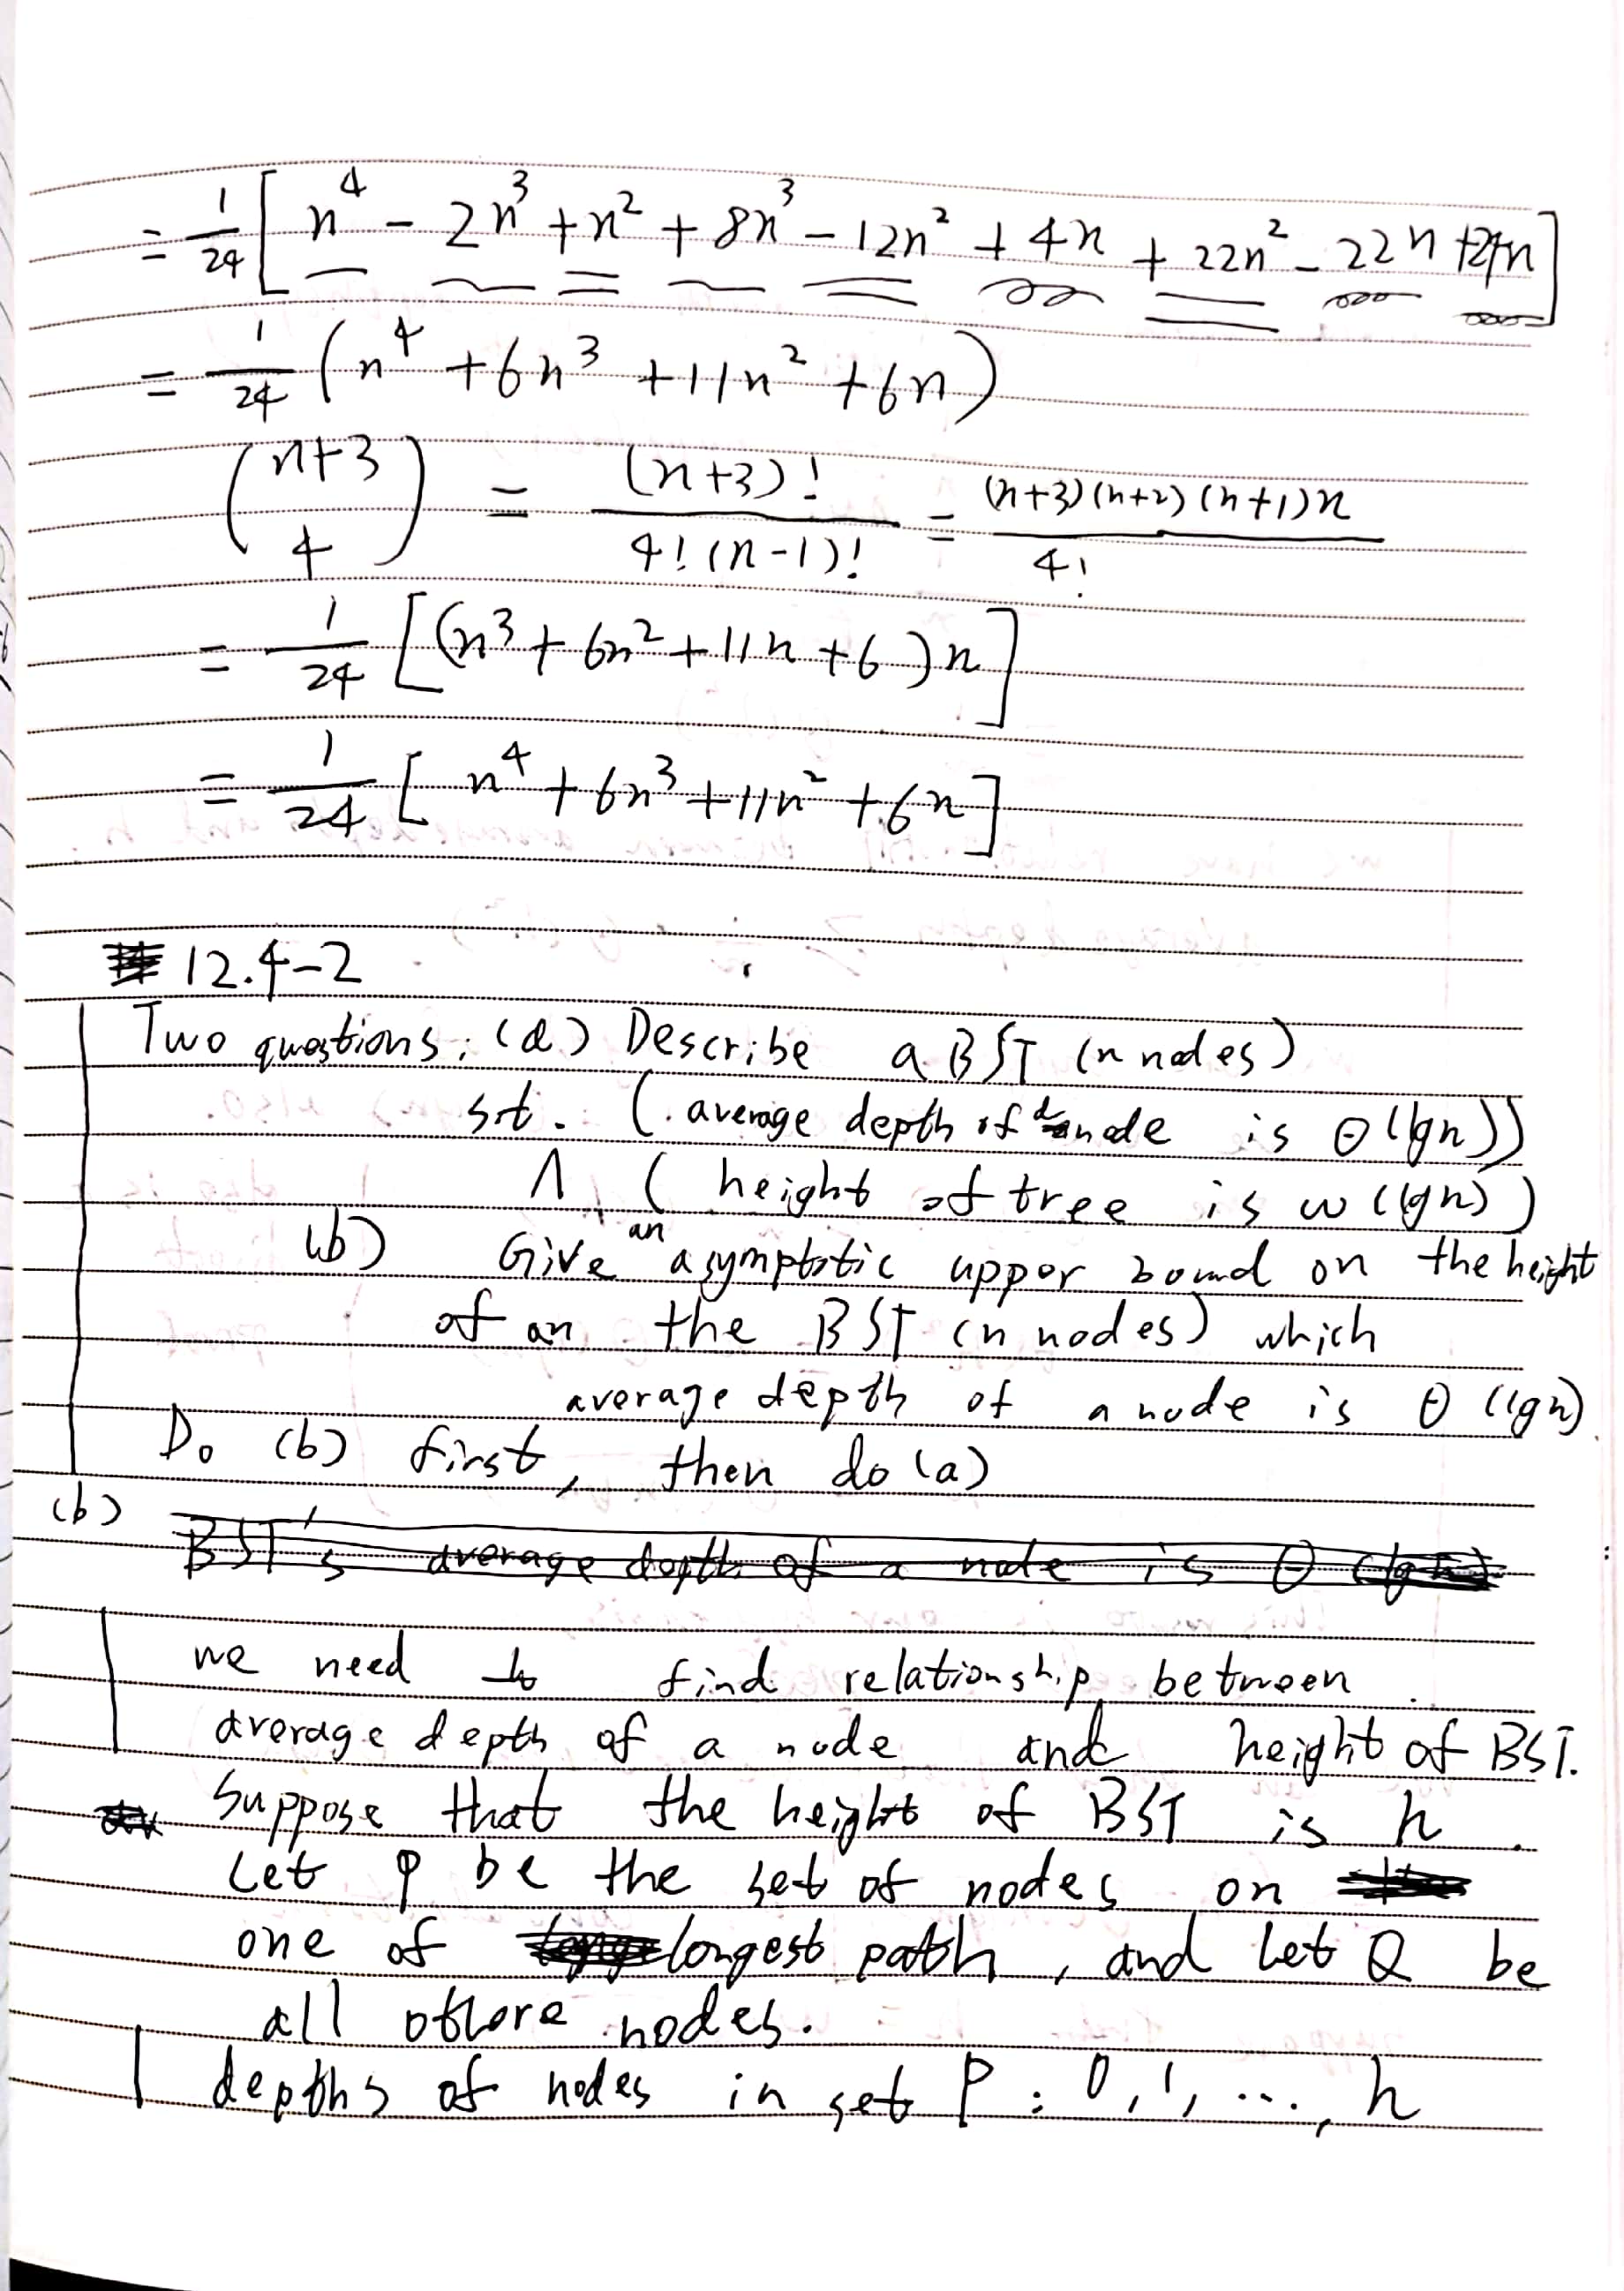 = 1/24 [ n⁴ - 2n³ + n² + 8n³ - 12n² + 4n + 22n² - 22n + 24n ]
= 1/24 ( n⁴ + 6n³ + 11n² + 6n )
(n+3 4) = (n+3)! / 4!(n-1)! = (n+3)(n+2)(n+1)n / 4!
= 1/24 [ (n³ + 6n² + 11n + 6) n ]
= 1/24 [ n⁴ + 6n³ + 11n² + 6n ]
12.4-2
Two questions: (a) Describe a BST (n nodes)
s.t. (average depth of a node is Θ(lgn))
∧ ( height of tree is ω(lgn) )
(b) Give an asymptotic upper bound on the height
of an the BST (n nodes) which
average depth of a node is Θ(lgn).
Do (b) first, then do (a)
(b)
BST's average depth of a node is Θ (lgn)
we need to find relationship between
average depth of a node and height of BST.
Suppose that the height of BST is h.
Let P be the set of nodes on
one of longest path, and let Q be
all othere nodes.
depths of nodes in set P : 0, 1, ..., h